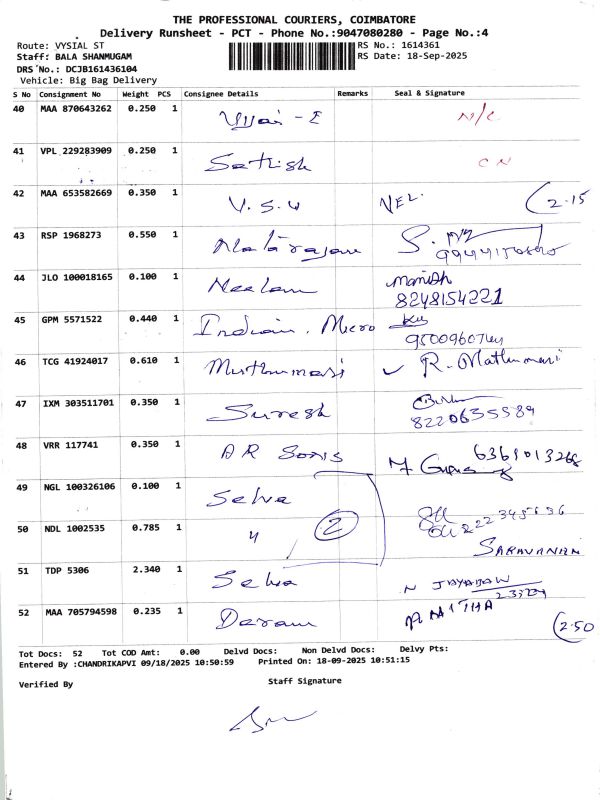 THE PROFESSIONAL COURIERS, COIMBATORE
Delivery Runsheet - PCT - Phone No.:9047080280 - Page No.:4
Route: VYSIAL ST
RS No.: 1614361
Staff: BALA SHANMUGAM
RS Date: 18-Sep-2025
DRS No.: DCJB161436104
Vehicle: Big Bag Delivery
S No Consignment No Weight PCS Consignee Details Remarks Seal & Signature
40 MAA 870643262 0.250 1 N/C
41 VPL 229283909 0.250 1 Sathish CN
42 MAA 653582669 0.350 1 V.S.U VEL. 2.15
43 RSP 1968273 0.550 1 Natarajan
44 JLO 100018165 0.100 1 Neelam Manish
8248154221
45 GPM 5571522 0.440 1 Indian. Micro
46 TCG 41924017 0.610 1 Muthumari R. Mathumari
47 IXM 303511701 0.350 1 Suresh
8220635589
48 VRR 117741 0.350 1 AR Sons
49 NGL 100326106 0.100 1 Selva
50 NDL 1002535 0.785 1 " 2
SARAVANAN
51 TDP 5306 2.340 1 Selva
52 MAA 705794598 0.235 1 2.50
Tot Docs: 52 Tot COD Amt: 0.00 Delvd Docs: Non Delvd Docs: Delvy Pts:
Entered By :CHANDRIKAPVI 09/18/2025 10:50:59 Printed On: 18-09-2025 10:51:15
Verified By Staff Signature